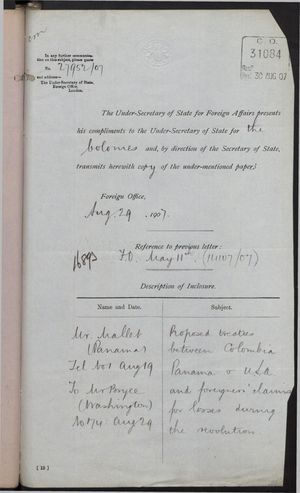 C.O.
31084
REC 30 AUG 07
In any further communica-
tion on this subject, please quote
No. 27952/07
and address—
The Under-Secretary of State,
Foreign Office,
London.
The Under-Secretary of State for Foreign Affairs presents
his compliments to the Under-Secretary of State for the
Colonies and, by direction of the Secretary of State,
transmits herewith copy of the under-mentioned paper.
Foreign Office,
Aug. 29, 1907.
Reference to previous letter:
16893 F.O. May 11th (14107/07)
Description of Inclosure.
Name and Date. Subject.
Mr. Mallet
(Panama)
Tel No 1 Aug 19
To Mr Bryce
(Washington)
No 174 Aug 29
Proposed treaties
between Colombia
Panama & USA
and foreigners' claims
for losses during
the revolution